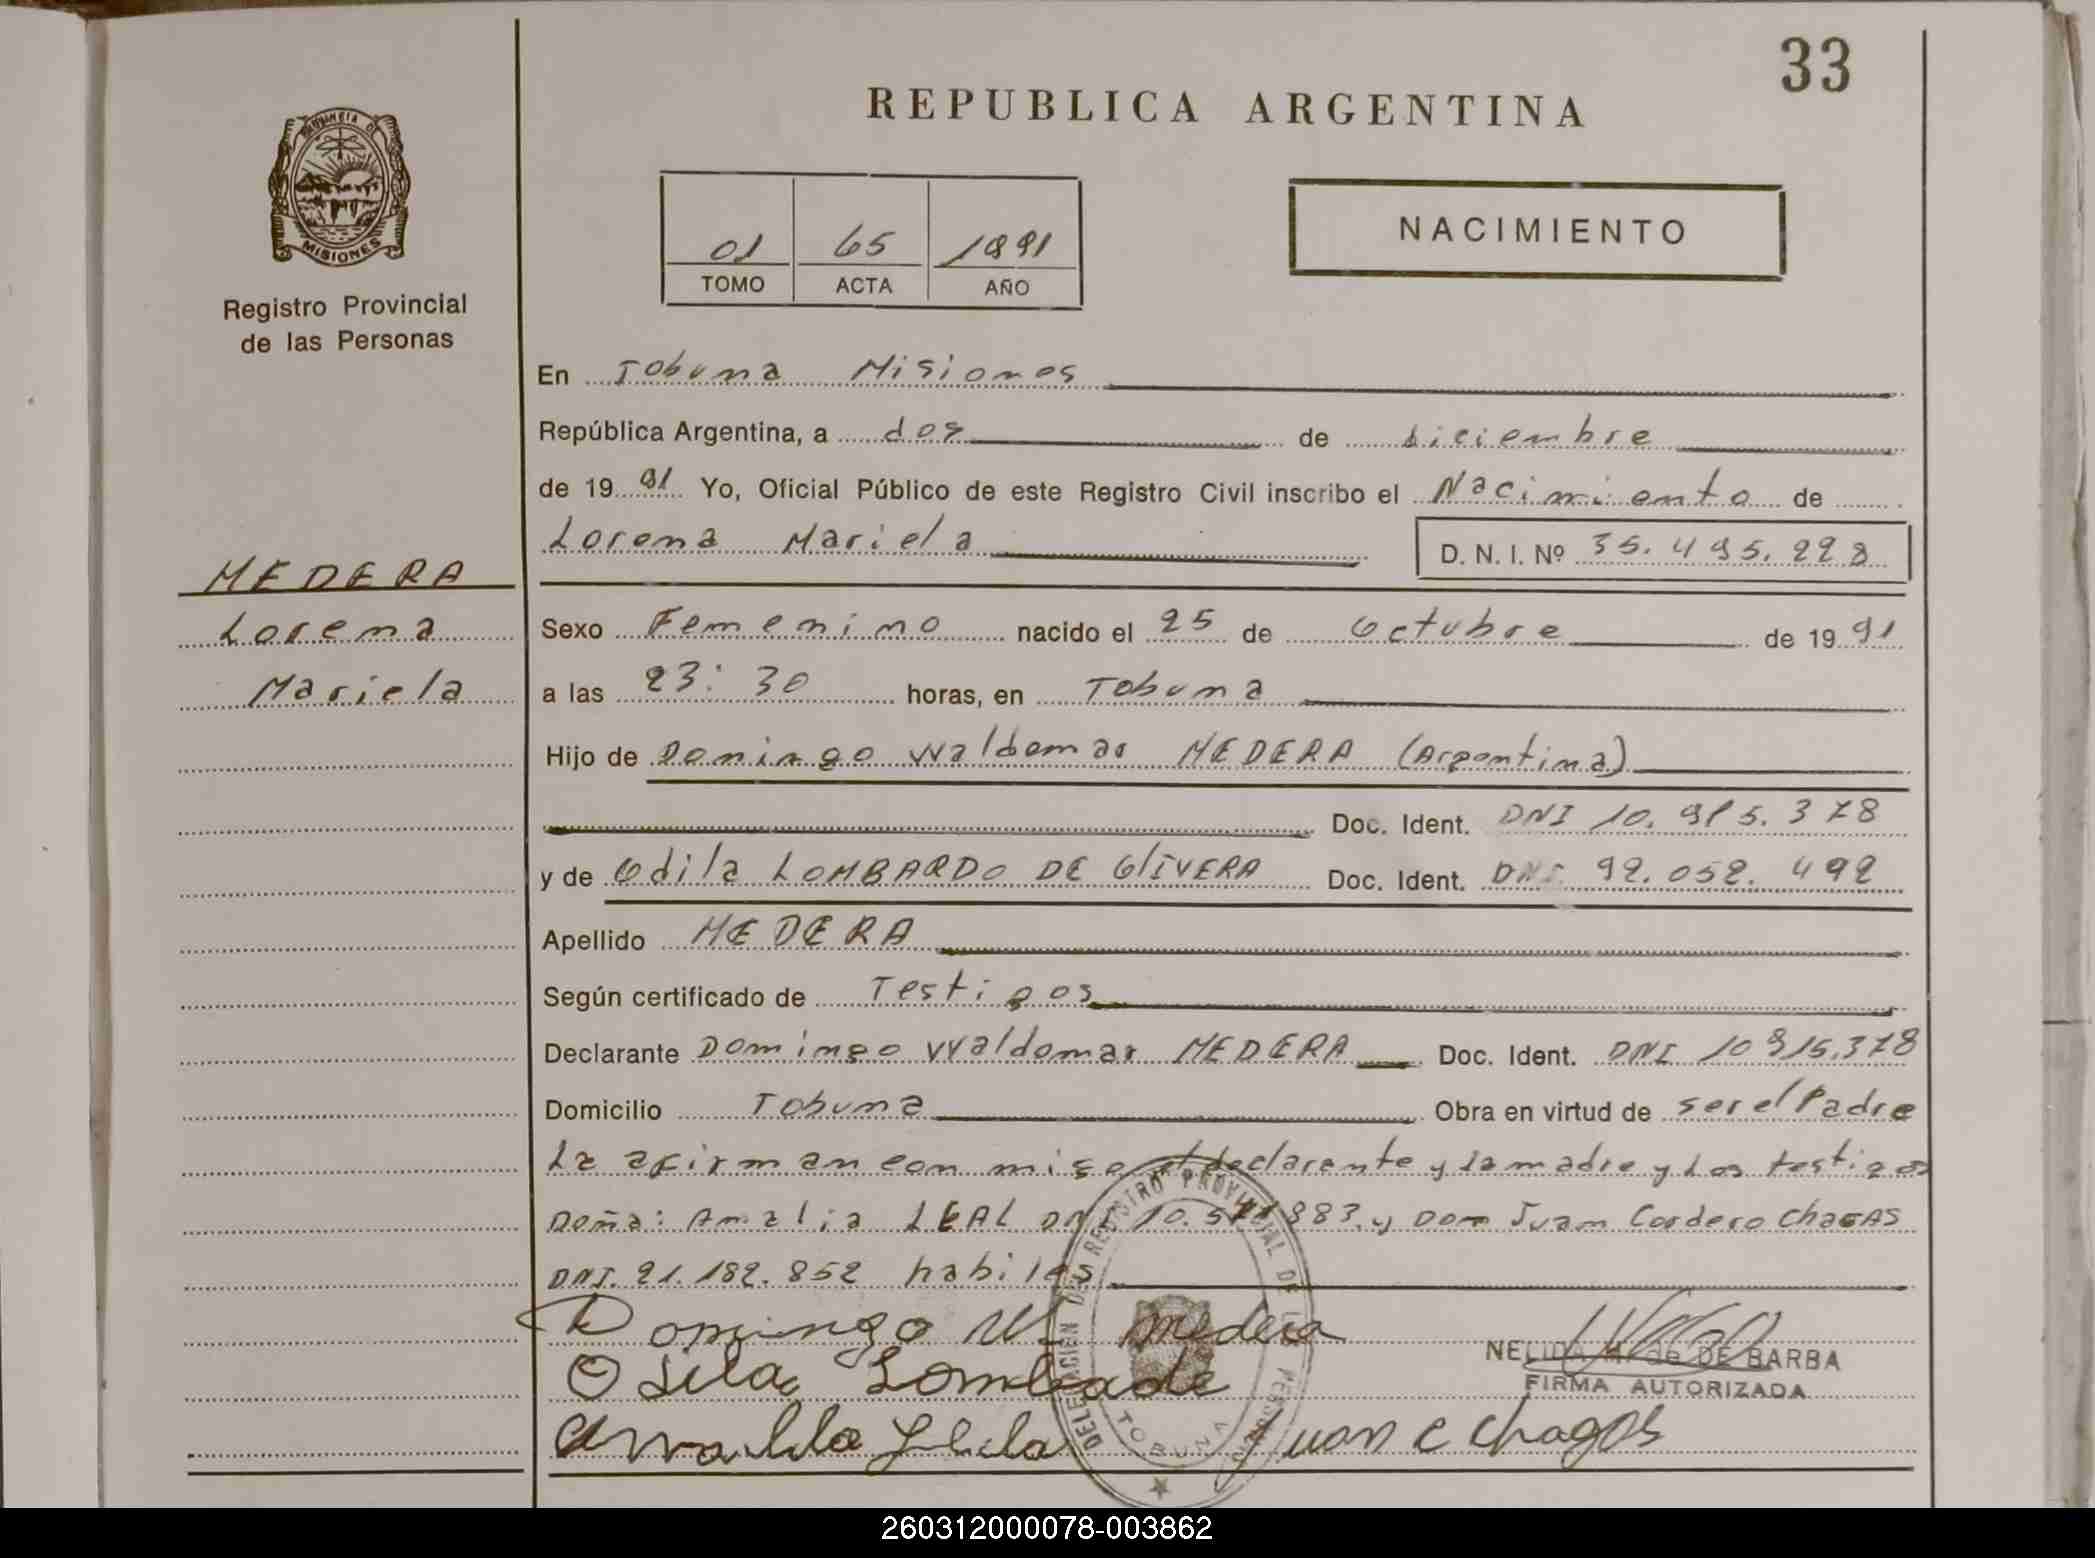 33
REPUBLICA ARGENTINA
PROVINCIA DE
MISIONES
Registro Provincial
de las Personas
01 65 1991
TOMO ACTA AÑO
NACIMIENTO
En Tobuna Misiones
República Argentina, a dos de diciembre
de 19 91 Yo, Oficial Público de este Registro Civil inscribo el Nacimiento de
Lorena Mariela D. N. I. Nº 35.495.228
MEDERA
Lorena
Mariela
Sexo Femenino nacido el 25 de Octubre de 19 91
a las 23:30 horas, en Tobuna
Hijo de Domingo Waldemar MEDERA (Argentina)
Doc. Ident. DNI 10.915.378
y de Odila LOMBARDO DE OlIVERA Doc. Ident. DNI 92.052.492
Apellido MEDERA
Según certificado de Testigos
Declarante Domingo Waldemar MEDERA Doc. Ident. DNI 10915.378
Domicilio Tobuna Obra en virtud de ser el Padre
La afirman con migo el declarante y la madre y los testigos
Doña: Amalia LEAL DNI 10. 883. y Don Juan Cordero ChagAS
DNI. 21.182.852 habiles
Domingo W medera
Odila Lombarde
NELIDA M. de DE BARBA
FIRMA AUTORIZADA
Juan c chagas
DELEGACION DEL REGISTRO PROVINCIAL DE LAS PERSONAS
TOBUNA
260312000078-003862